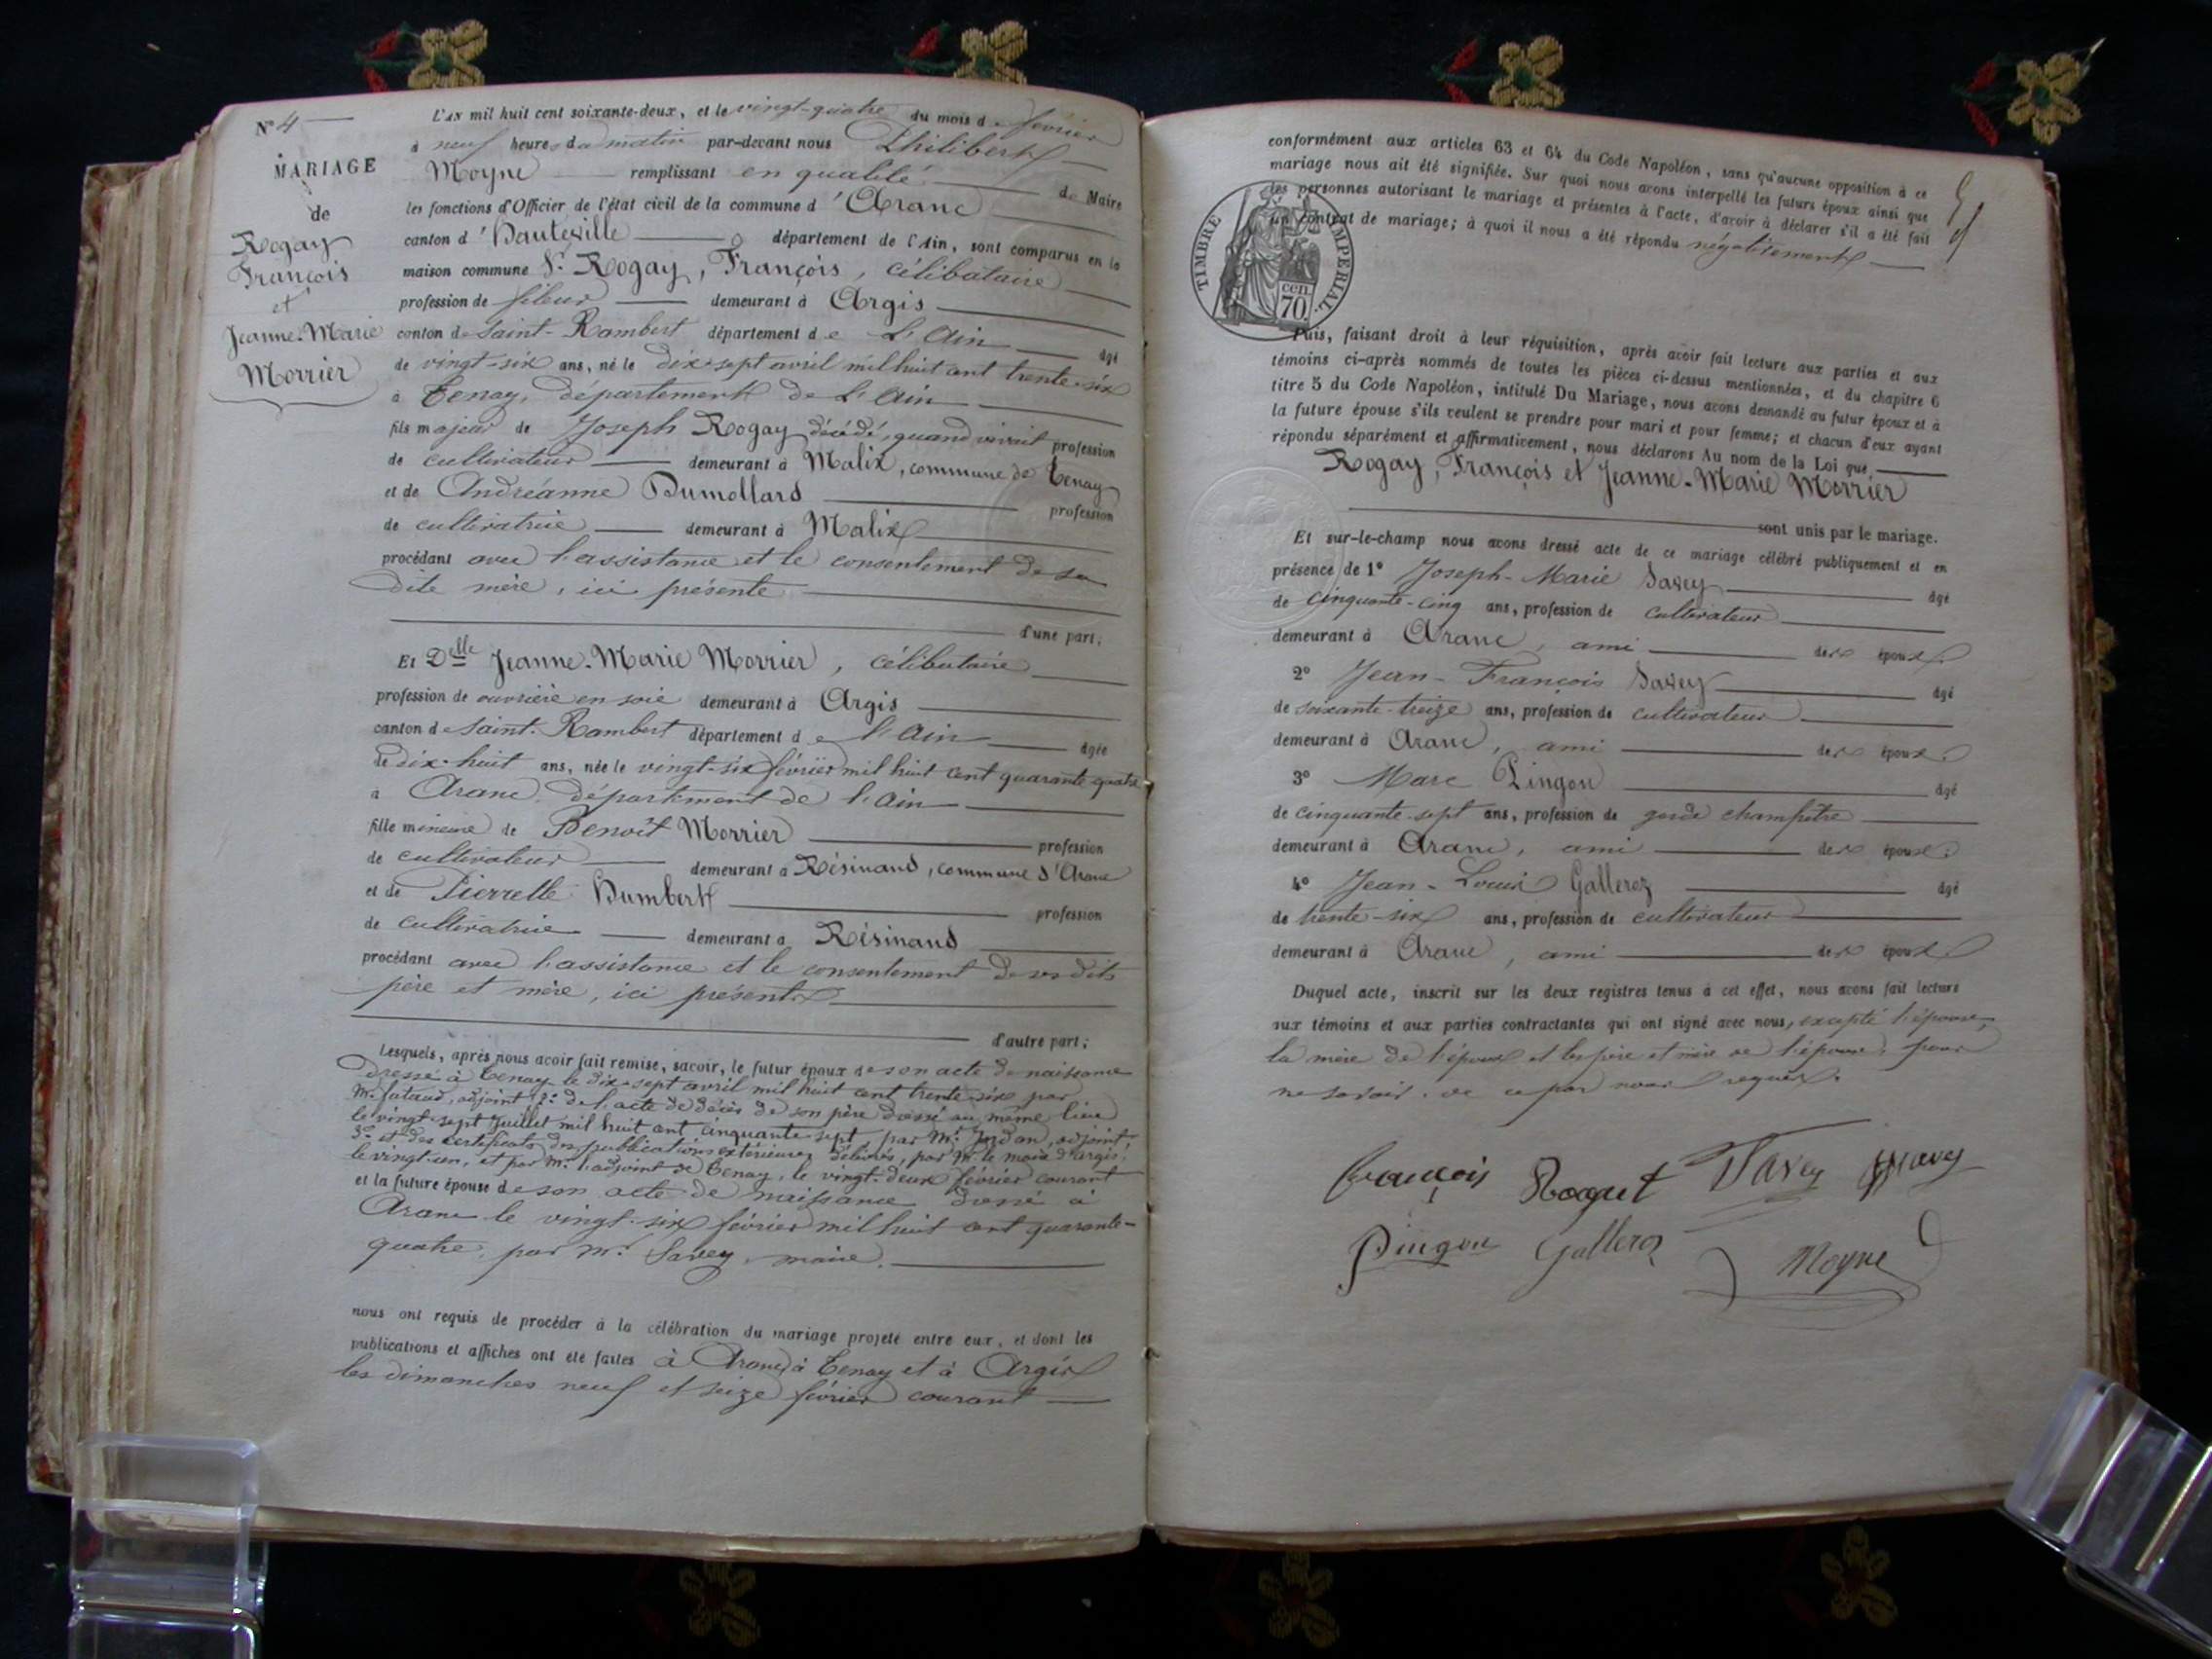 N° 4
MARIAGE
de
Rogay
François
et
Jeanne-Marie
Morrier
L'AN mil huit cent soixante-deux, et le vingt-quatre du mois de février
à neuf heures du matin par-devant nous Philibert
Moyne remplissant en qualité de Maire
les fonctions d'Officier de l'état civil de la commune d'Aranc
canton d'Hauteville département de l'Ain, sont comparus en la
maison commune Sr Rogay, François, célibataire
profession de fileur demeurant à Argis
canton de Saint-Rambert département de L'Ain âgé
de vingt-six ans, né le dix-sept avril mil huit cent trente-six
à Tenay, département de L'Ain
fils majeur de Joseph Rogay décédé, quand vivait profession
de cultivateur demeurant à Malix, commune de Tenay
et de Andréanne Dumollard profession
de cultivatrice demeurant à Malix
procédant avec l'assistance et le consentement de sa
dite mère, ici présente
d'une part;
Et Delle Jeanne-Marie Morrier, célibataire
profession de ouvrière en soie demeurant à Argis
canton de Saint-Rambert département de l'Ain âgée
de dix-huit ans, née le vingt-six février mil huit cent quarante quatre
à Aranc, département de l'Ain
fille mineure de Benoît Morrier profession
de cultivateur demeurant à Résinand, commune d'Aranc
et de Pierrette Humbert profession
de cultivatrice demeurant à Résinand
procédant avec l'assistance et le consentement de ses dits
père et mère, ici présents
d'autre part;
Lesquels, après nous avoir fait remise, savoir, le futur époux de son acte de naissance
dressé à Tenay le dix-sept avril mil huit cent trente-six par
Mr , adjoint, 2° de l'acte de décès de son père dressé au même lieu
le vingt-sept Juillet mil huit cent cinquante-sept, par Mr Jordan, adjoint,
3° et des certificats des publications extérieures délivrés, par Mr le maire d'Argis,
le vingt-un, et par Mr l'adjoint de Tenay, le vingt-deux février courant
et la future épouse de son acte de naissance dressé à
Aranc le vingt-six février mil huit cent quarante-
quatre, par Mr Savey, maire.
nous ont requis de procéder à la célébration du mariage projeté entre eux, et dont les
publications et affiches ont été faites à Aranc, à Tenay et à Argis
les dimanches neuf et seize février courant
conformément aux articles 63 et 64 du Code Napoléon, sans qu'aucune opposition à ce
mariage nous ait été signifiée. Sur quoi nous avons interpellé les futurs époux ainsi que
les personnes autorisant le mariage et présentes à l'acte, d'avoir à déclarer s'il a été fait
un contrat de mariage; à quoi il nous a été répondu négativement
TIMBRE IMPÉRIAL
cen.
70.
Puis, faisant droit à leur réquisition, après avoir fait lecture aux parties et aux
témoins ci-après nommés de toutes les pièces ci-dessus mentionnées, et du chapitre 6
titre 5 du Code Napoléon, intitulé Du Mariage, nous avons demandé au futur époux et à
la future épouse s'ils veulent se prendre pour mari et pour femme; et chacun d'eux ayant
répondu séparément et affirmativement, nous déclarons Au nom de la Loi que
Rogay, François et Jeanne-Marie Morrier
sont unis par le mariage.
Et sur-le-champ nous avons dressé acte de ce mariage célébré publiquement et en
présence de 1° Joseph-Marie Savey âgé
de cinquante-cinq ans, profession de cultivateur
demeurant à Aranc, ami des époux.
2° Jean-François Savey âgé
de soixante-treize ans, profession de cultivateur
demeurant à Aranc, ami des époux
3° Marc Pingon âgé
de cinquante-sept ans, profession de garde champêtre
demeurant à Aranc, ami des époux.
4° Jean-Louis Galleroz âgé
de trente-six ans, profession de cultivateur
demeurant à Aranc, ami des époux
Duquel acte, inscrit sur les deux registres tenus à cet effet, nous avons fait lecture
aux témoins et aux parties contractantes qui ont signé avec nous, excepté l'épouse,
la mère de l'époux et les père et mère de l'épouse, pour
ne savoir, de ce par nous requis.
françois Roguet Savey Savey
Pingon Galleroz Moyne